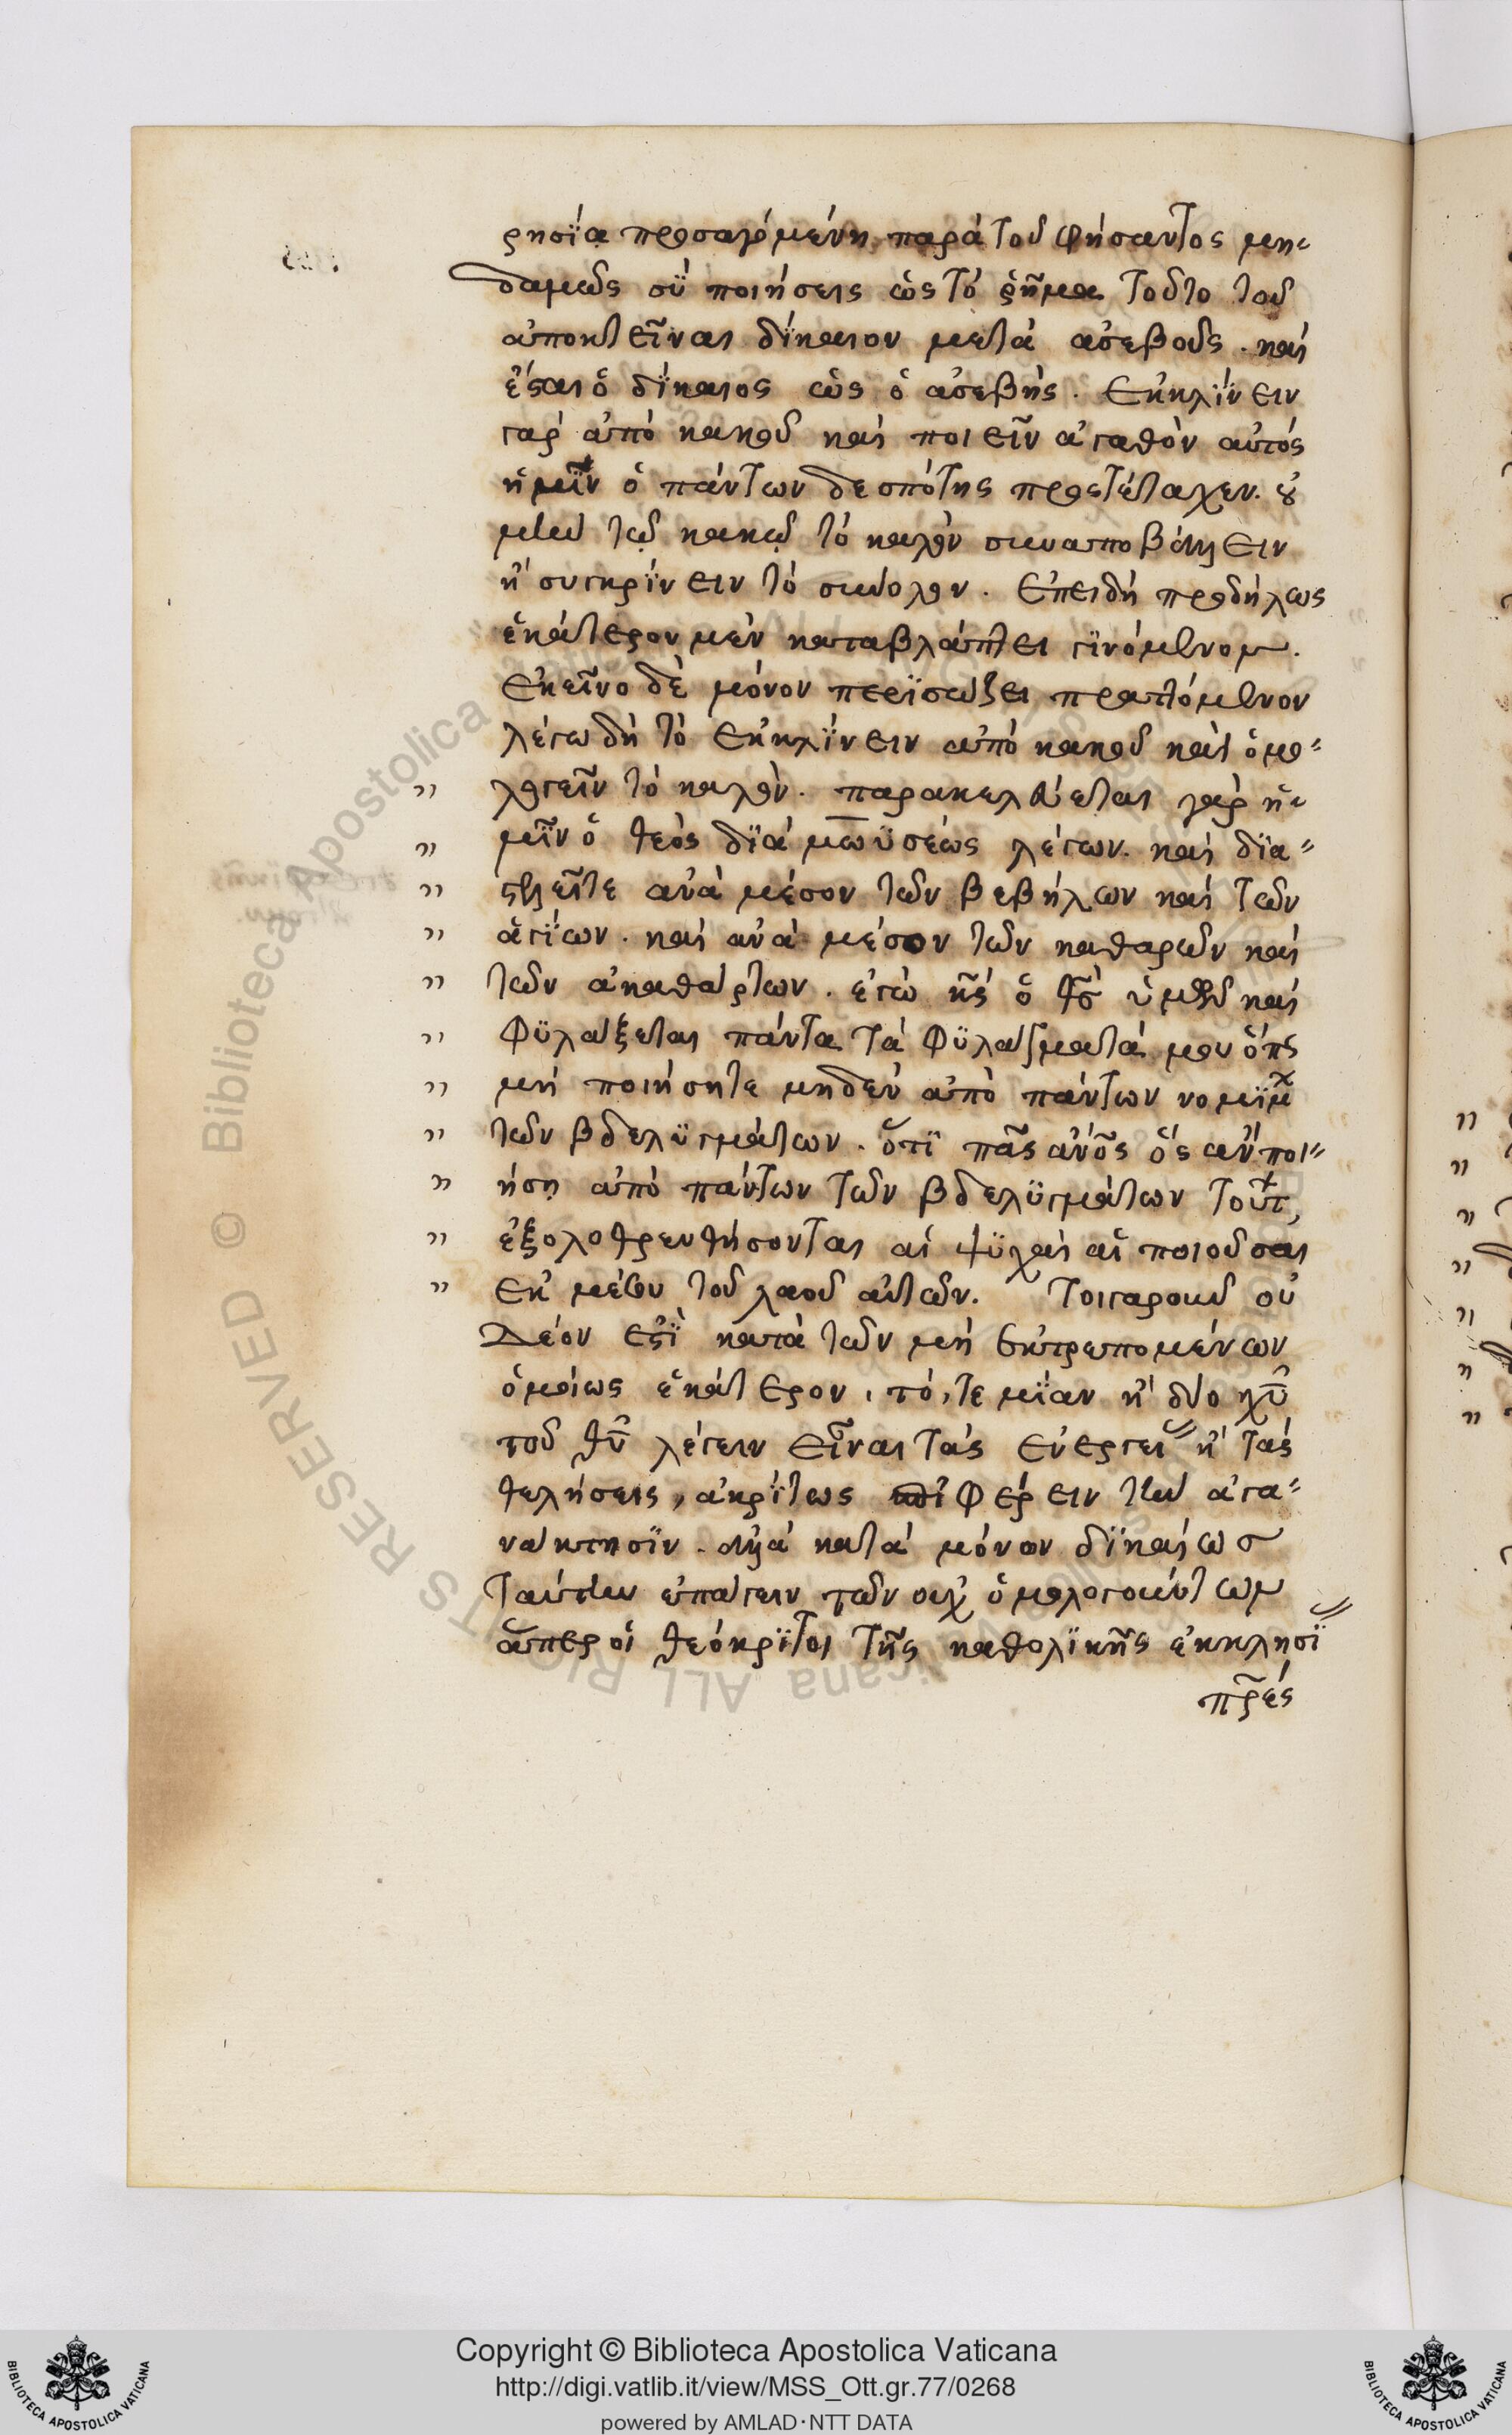 ρησΐα προσαγομένη παρὰ τοῦ φήσαντος μη-
δαμῶς σὺ ποιήσεις ὡς τὸ ῥῆμα τοῦτο τοῦ
ἀποκτεῖναι δίκαιον μετὰ ἀσεβοῦς. καὶ
ἔσται ὁ δίκαιος ὡς ὁ ἀσεβής. Ἐκκλίνειν
γὰρ ἀπὸ κακοῦ καὶ ποιεῖν ἀγαθὸν αὐτὸς
ἡμῖν ὁ πάντων δεσπότης προστέταχεν. οὐ
μὴν τῷ κακῷ τὸ καλὸν συναποβάλλειν
ἢ συγκρίνειν τὸ σύνολον. Ἐπειδὴ προδήλως
ἑκάτερον μὲν καταβλάπτει γινόμενον.
Ἐκεῖνο δὲ μόνον περϊσώζει πραττόμενον
λέγω δὴ τὸ ἐκκλίνειν ἀπὸ κακοῦ καὶ ὁμο-
λογεῖν τὸ καλὸν. παρακελεύεται γὰρ ἡ-
μῖν ὁ θεὸς διὰ μωϋσέως λέγων. καὶ δια-
στελεῖτε ἀνὰ μέσον τῶν βεβήλων καὶ τῶν
ἁγίων. καὶ ἀνὰ μέσον τῶν καθαρῶν καὶ
τῶν ἀκαθάρτων. ἐγὼ κς ὁ θς ὑμῶν καὶ
φϋλάξεται πάντα τὰ φϋλάγματά μου ὅπως
μὴ ποιήσητε μηδὲν ἀπὸ πάντων νομίμ
τῶν βδελϋγμάτων. ὅτι πᾶς ἀνος ὃς ἂν ποι-
ήσῃ ἀπὸ πάντων τῶν βδελϋγμάτων τούτ
ἐξολοθρευθήσονται αἱ ψϋχαὶ αἱ ποιοῦσαι
ἐκ μέσου τοῦ λαοῦ αὐτῶν. Τοιγαροῦν οὐ
Δέον ἐστὶ κατὰ τῶν μὴ ἐκτρεπομένων
ὁμοίως ἑκάτερον, τό, τε μίαν ἢ δύο χυ
τοῦ θυ λέγειν εἶναι τὰς ἐνεργεί ἢ τὰς
θελήσεις, ἀκρίτως φέρειν τὴν ἀγα-
νάκτησϊν. ἀλλὰ κατὰ μόνον δϊκαίως
ταύτην ἐπάγειν τῶν οὐχ ὁμολογούντων
ἅπερ οἱ θεόκρϊτοι τῆς καθολϊκῆς ἐκκλησϊ
πρες
Copyright © Biblioteca Apostolica Vaticana
http://digi.vatlib.it/view/MSS_Ott.gr.77/0268
powered by AMLAD·NTT DATA